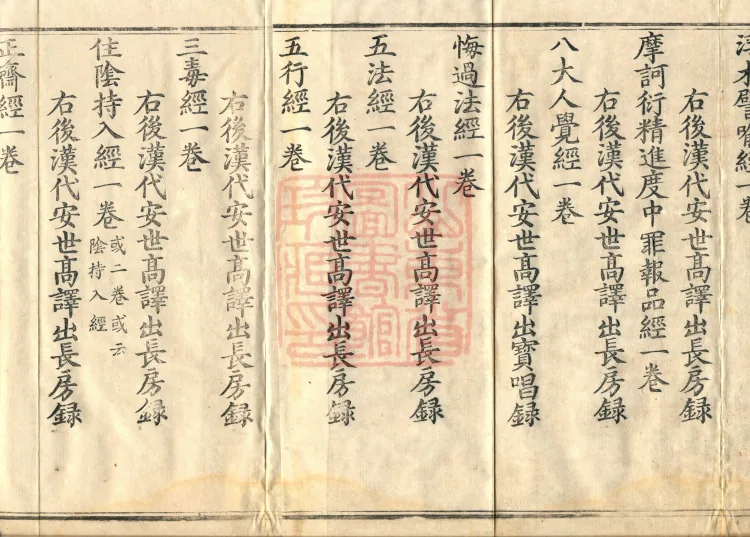 浮木譬喻經一卷
右後漢代安世髙譯出長房録
摩訶衍精進度中罪報品經一卷
右後漢代安世髙譯出長房録
八大人覺經一卷
右後漢代安世髙譯出寶唱録
悔過法經一卷
右後漢代安世髙譯出長房録
五法經一卷
右後漢代安世髙譯出長房録
五行經一卷
右後漢代安世髙譯出長房録
三毒經一卷
右後漢代安世髙譯出長房録
住陰持入經一卷或二卷或云
陰持入經
右後漢代安世髙譯出長房録
正齋經一卷